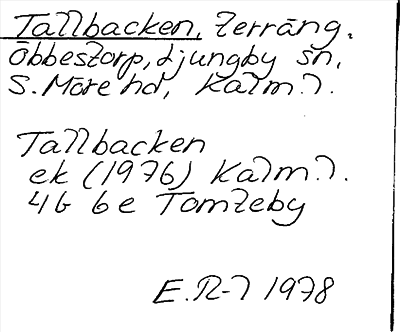 Tallbacken, Terräng.
Öbbestorp, Ljungby sn,
S. Möre hd, Kalm. l.
Tallbacken
ek (1976) Kalm. l.
4G 6e Tomteby
E. R-l 1978